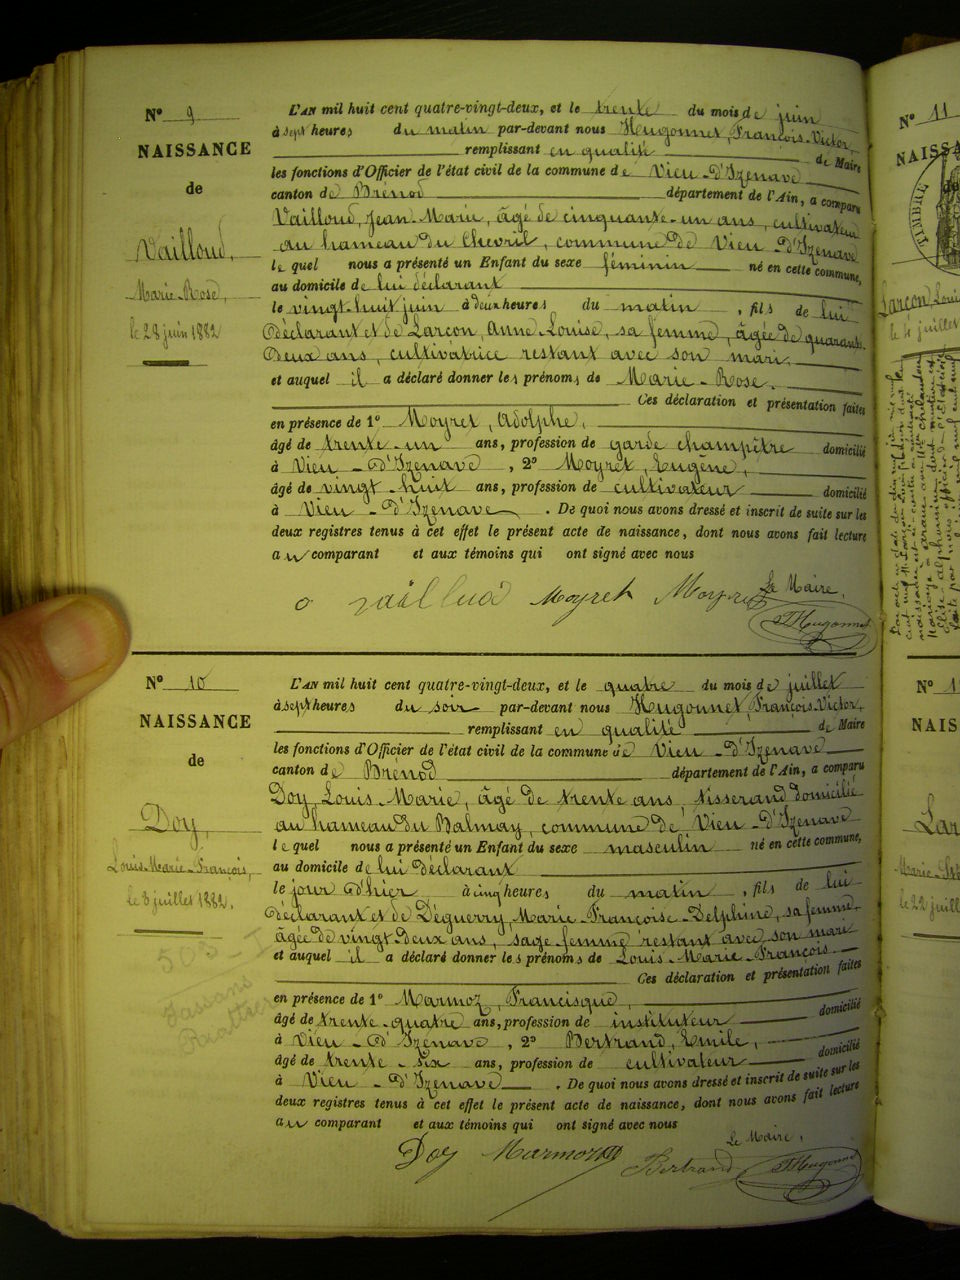 N° 9
NAISSANCE
de
Vailloud,
Marie-Rose,
le 28 juin 1882
L'AN mil huit cent quatre-vingt-deux, et le trente du mois de juin
à sept heures du matin par-devant nous Hugonnet, François-Victor,
remplissant en qualité de Maire
les fonctions d'Officier de l'état civil de la commune de Vieu-d'Izenave
canton de Brénod département de l'Ain, a comparu
Vailloud, Jean-Marie, âgé de cinquante-un ans, cultivateur
au hameau du Chevril, commune de Vieu-d'Izenave
lequel nous a présenté un Enfant du sexe féminin né en cette commune,
au domicile de lui déclarant
le vingt-huit juin à deux heures du matin, fils de lui
déclarant et de Larçon, Anne Louise, sa femme, âgée de quarante-
deux ans, cultivatrice restant avec son mari,
et auquel il a déclaré donner les prénoms de Marie-Rose.
Ces déclaration et présentation faites
en présence de 1° Moyret, Adolphe,
âgé de trente-un ans, profession de garde champêtre domicilié
à Vieu-d'Izenave, 2° Moyret, Eugène,
âgé de vingt-huit ans, profession de cultivateur domicilié
à Vieu-d'Izenave. De quoi nous avons dressé et inscrit de suite sur les
deux registres tenus à cet effet le présent acte de naissance, dont nous avons fait lecture
au comparant et aux témoins qui ont signé avec nous
Le Maire,
Moyret Hugonnet
N° 10
NAISSANCE
de
Doy,
Louis-Marie-François,
le 3 juillet 1882.
503
L'AN mil huit cent quatre-vingt-deux, et le quatre du mois de juillet
à sept heures du soir par-devant nous Hugonnet, François-Victor,
remplissant en qualité de Maire
les fonctions d'Officier de l'état civil de la commune de Vieu-d'Izenave
canton de Brénod département de l'Ain, a comparu
Doy, Louis-Marie, âgé de trente ans, tisserand domicilié
au hameau du Balmay, commune de Vieu-d'Izenave
lequel nous a présenté un Enfant du sexe masculin né en cette commune,
au domicile de lui déclarant
le jour d'hier à cinq heures du matin, fils de lui
déclarant et de Déguerry, Marie-Françoise-Delphine, sa femme,
âgée de vingt-deux ans, sage femme restant avec son mari
et auquel il a déclaré donner les prénoms de Louis-Marie-François.
Ces déclaration et présentation faites
en présence de 1° Marmoz, Francisque,
âgé de trente-quatre ans, profession de instituteur domicilié
à Vieu-d'Izenave, 2° Bertrand, Emile,
âgé de trente-six ans, profession de cultivateur domicilié
à Vieu-d'Izenave. De quoi nous avons dressé et inscrit de suite sur les
deux registres tenus à cet effet le présent acte de naissance, dont nous avons fait lecture
au comparant et aux témoins qui ont signé avec nous
Le Maire,
Doy Marmoz Bertrand Hugonnet
N° 11
TIMBRE
Larçon Louis
le 4 juillet